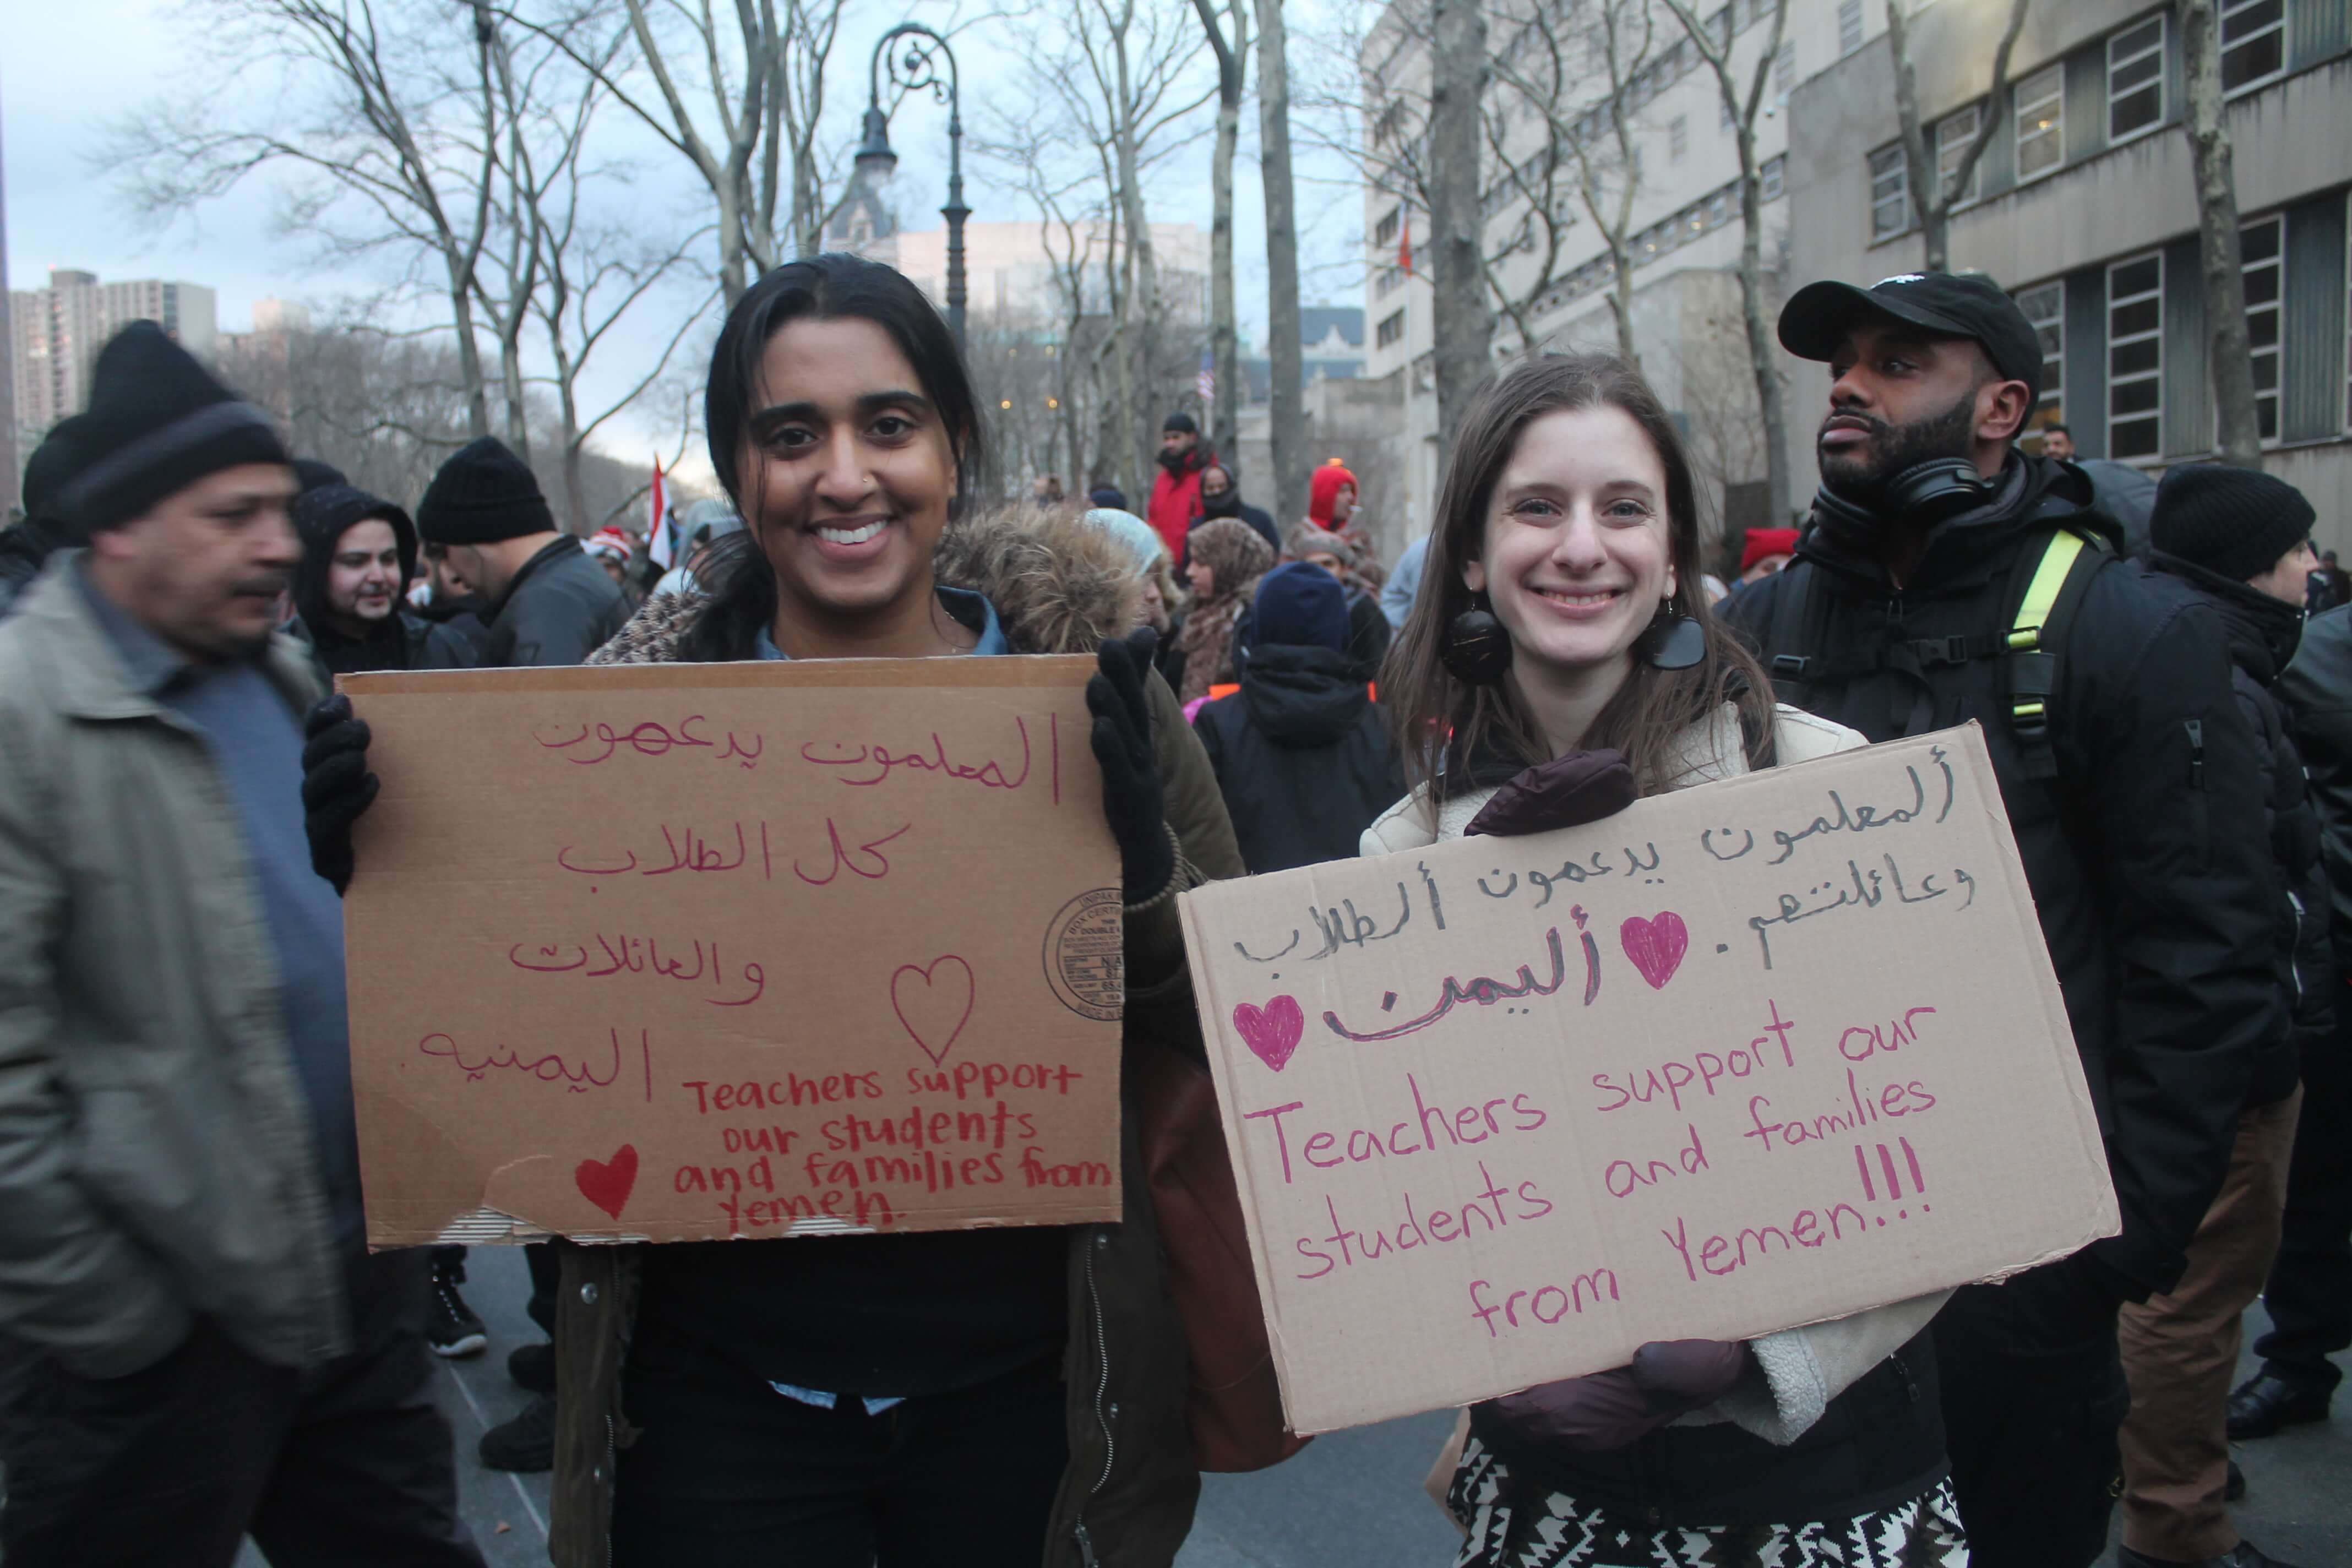 المعلمون يدعهون
كل الطلاب
والعائلات
اليمنيه
Teachers support
our students
and families from
Yemen.
ألمعلمون يدعمون ألطلاب
وعائلتهم.
أليمن
Teachers support our
students and families
from Yemen!!!